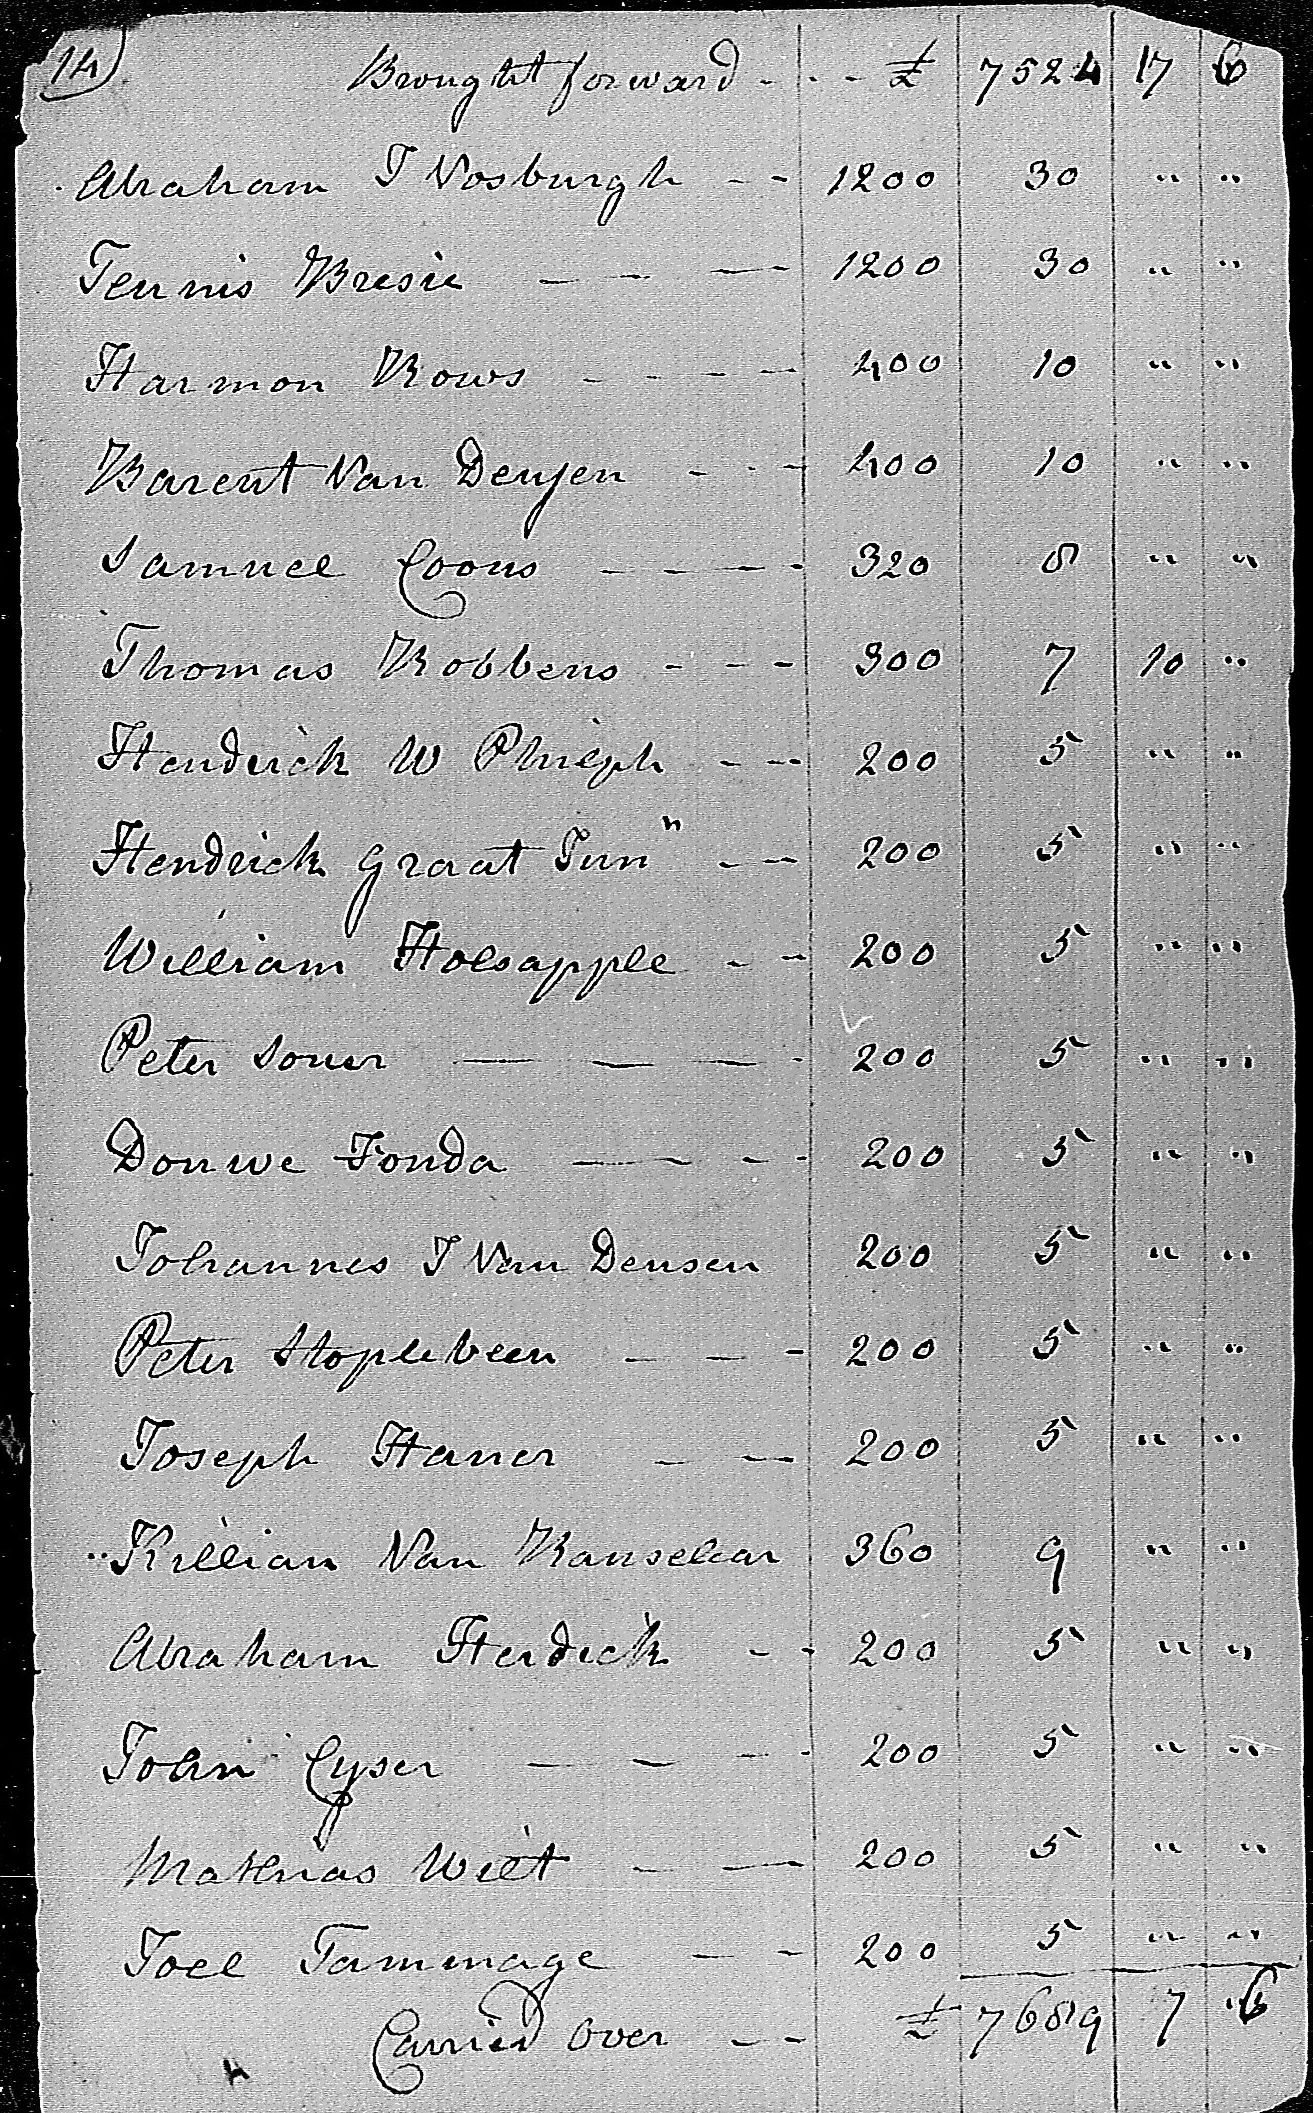 14
Brought forward - - - £ 7524 17 6
Abraham J Vosburgh - - 1200 30 " "
Teunis Bresie - - - 1200 30 " "
Harmon Rows - - - - 400 10 " "
Barent Van Deusen - - - 400 10 " "
Samuel Coons - - - - 320 8 " "
Thomas Robbens - - - 300 7 10 "
Hendrick W Philiph - - 200 5 " "
Hendrick Graat Junr - - 200 5 " "
William Holsapple - - 200 5 " "
Peter Souer - - - - 200 5 " "
Douwe Fonda - - - - 200 5 " "
Johannes J Van Deusen 200 5 " "
Peter Stoplebeen - - - 200 5 " "
Joseph Haner - - 200 5 " "
" Killian Van Ranselear 360 9 " "
Abraham Herdick - - 200 5 " "
John Cyser - - - - 200 5 " "
Mathias Wilt - - 200 5 " "
Joel Tammage - - 200 5 " "
Carried Over - - £ 7689 7 6